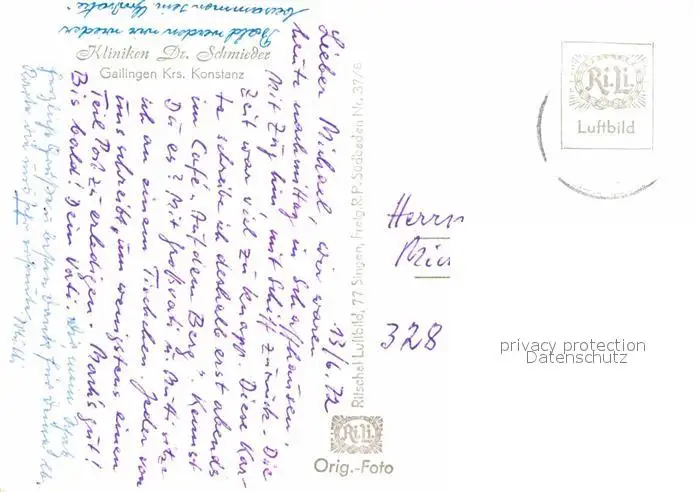 Kliniken Dr. Schmieder
Gailingen Krs. Konstanz
13/6.72
Lieber Michael, wir waren
heute nachmittag in Schaffhausen.
Mit Zug hin, mit Schiff zurück. Die
Zeit war viel zu knapp. Diese Kar-
te schreibe ich deshalb erst abends
im Café „Auf dem Berg“. Kennst
Du es? Mit Großvati u. Mutti sitze
ich an einem Tischchen. Jeder von
uns schreibt, um wenigstens einen
Teil Post zu erledigen. Mach's gut!
Bis bald! Dein Vati.
Bald werden wir wieder
zusammen sein
Ritschel Luftbild, 77 Singen, Freig. R.P. Südbaden Nr. 37/6
Ri.Li.
Luftbild
Herrn
Mic
328
privacy protection
Datenschutz
Ri.Li.
Orig.-Foto